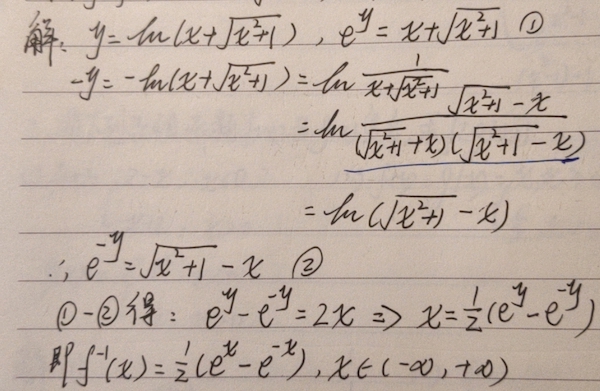 解: y=ln(x+√(x²+1)), e^y=x+√(x²+1) ①
-y=-ln(x+√(x²+1))=ln 1/(x+√(x²+1))
=ln (√(x²+1)-x)/((√(x²+1)+x)(√(x²+1)-x))
=ln(√(x²+1)-x)
∴ e^(-y)=√(x²+1)-x ②
①-②得: e^y-e^(-y)=2x ⇒ x=½(e^y-e^(-y))
即f⁻¹(x)=½(e^x-e^(-x)), x∈(-∞,+∞)